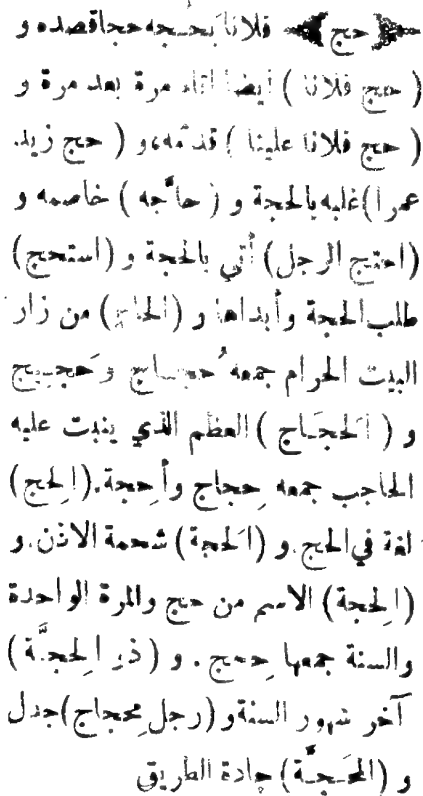 ﴿ حج ﴾ فلانا يَحُجه حجا قصده و
( حج فلانا ) ايضا اتاه مرة بعد مرة و
( حج فلانا علينا ) قدمه، و ( حج زيد
عمرا) غلبه بالحجة و ( حاَّجه ) خاصمه و
(احتج الرجل) أتي بالحجة و (استحج)
طلب الحجة وأبداها و (الحاج) من زار
البيت الحرام جمعه حُجاج وَحجيج
و ( الَحجَاج ) العظم الذي ينبت عليه
الحاجب جمعه حِجاج وأحِجة. (الحِج)
لغة في الحج. و (الَحجة) شحمة الاذن. و
(الِحجة) الاسم من حج والمرة الواحدة
والسنة جمعها حِجج . و ( ذو الِحجَّة )
آخر شهور السنة و (رجل مِحجاج) جدل
و (المَحَجَّة) جادة الطريق